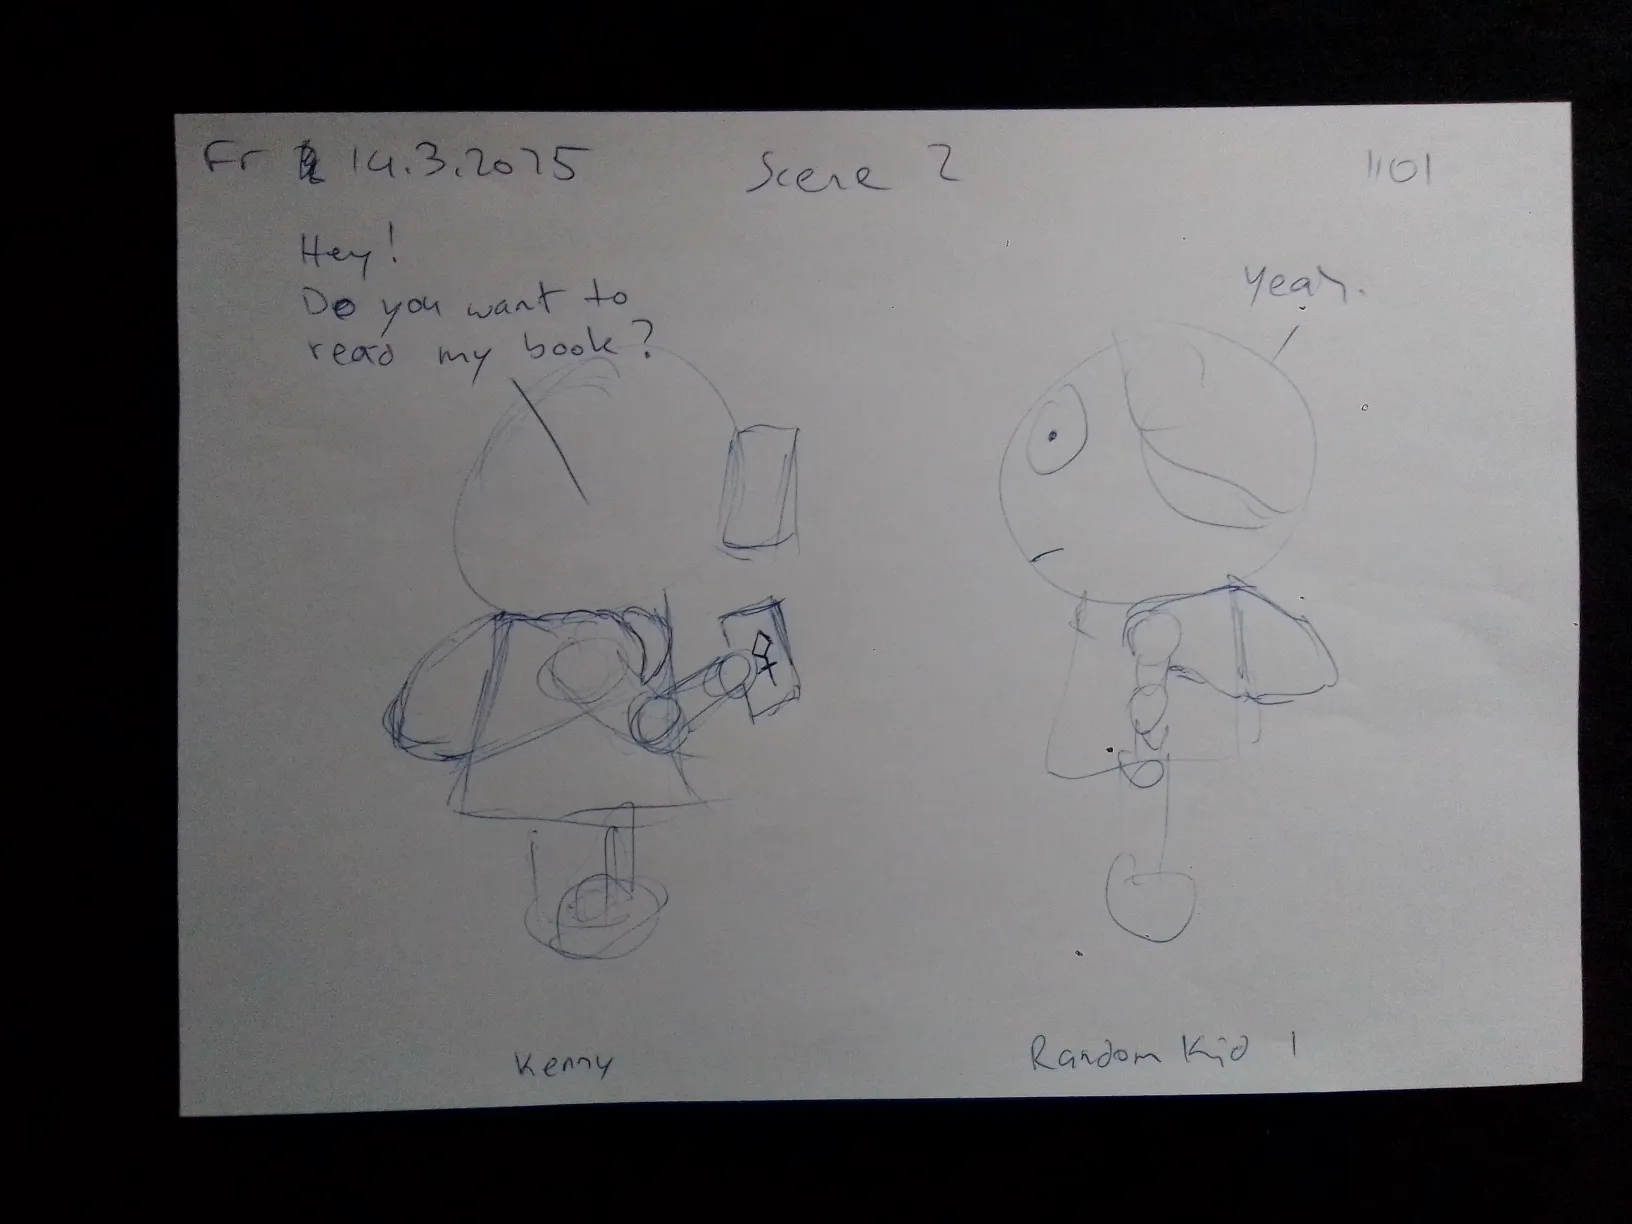 Fr 14.3.2025
Scene 2
1101
Hey!
Do you want to
read my book?
Yeah.
Kenny
Random Kid 1